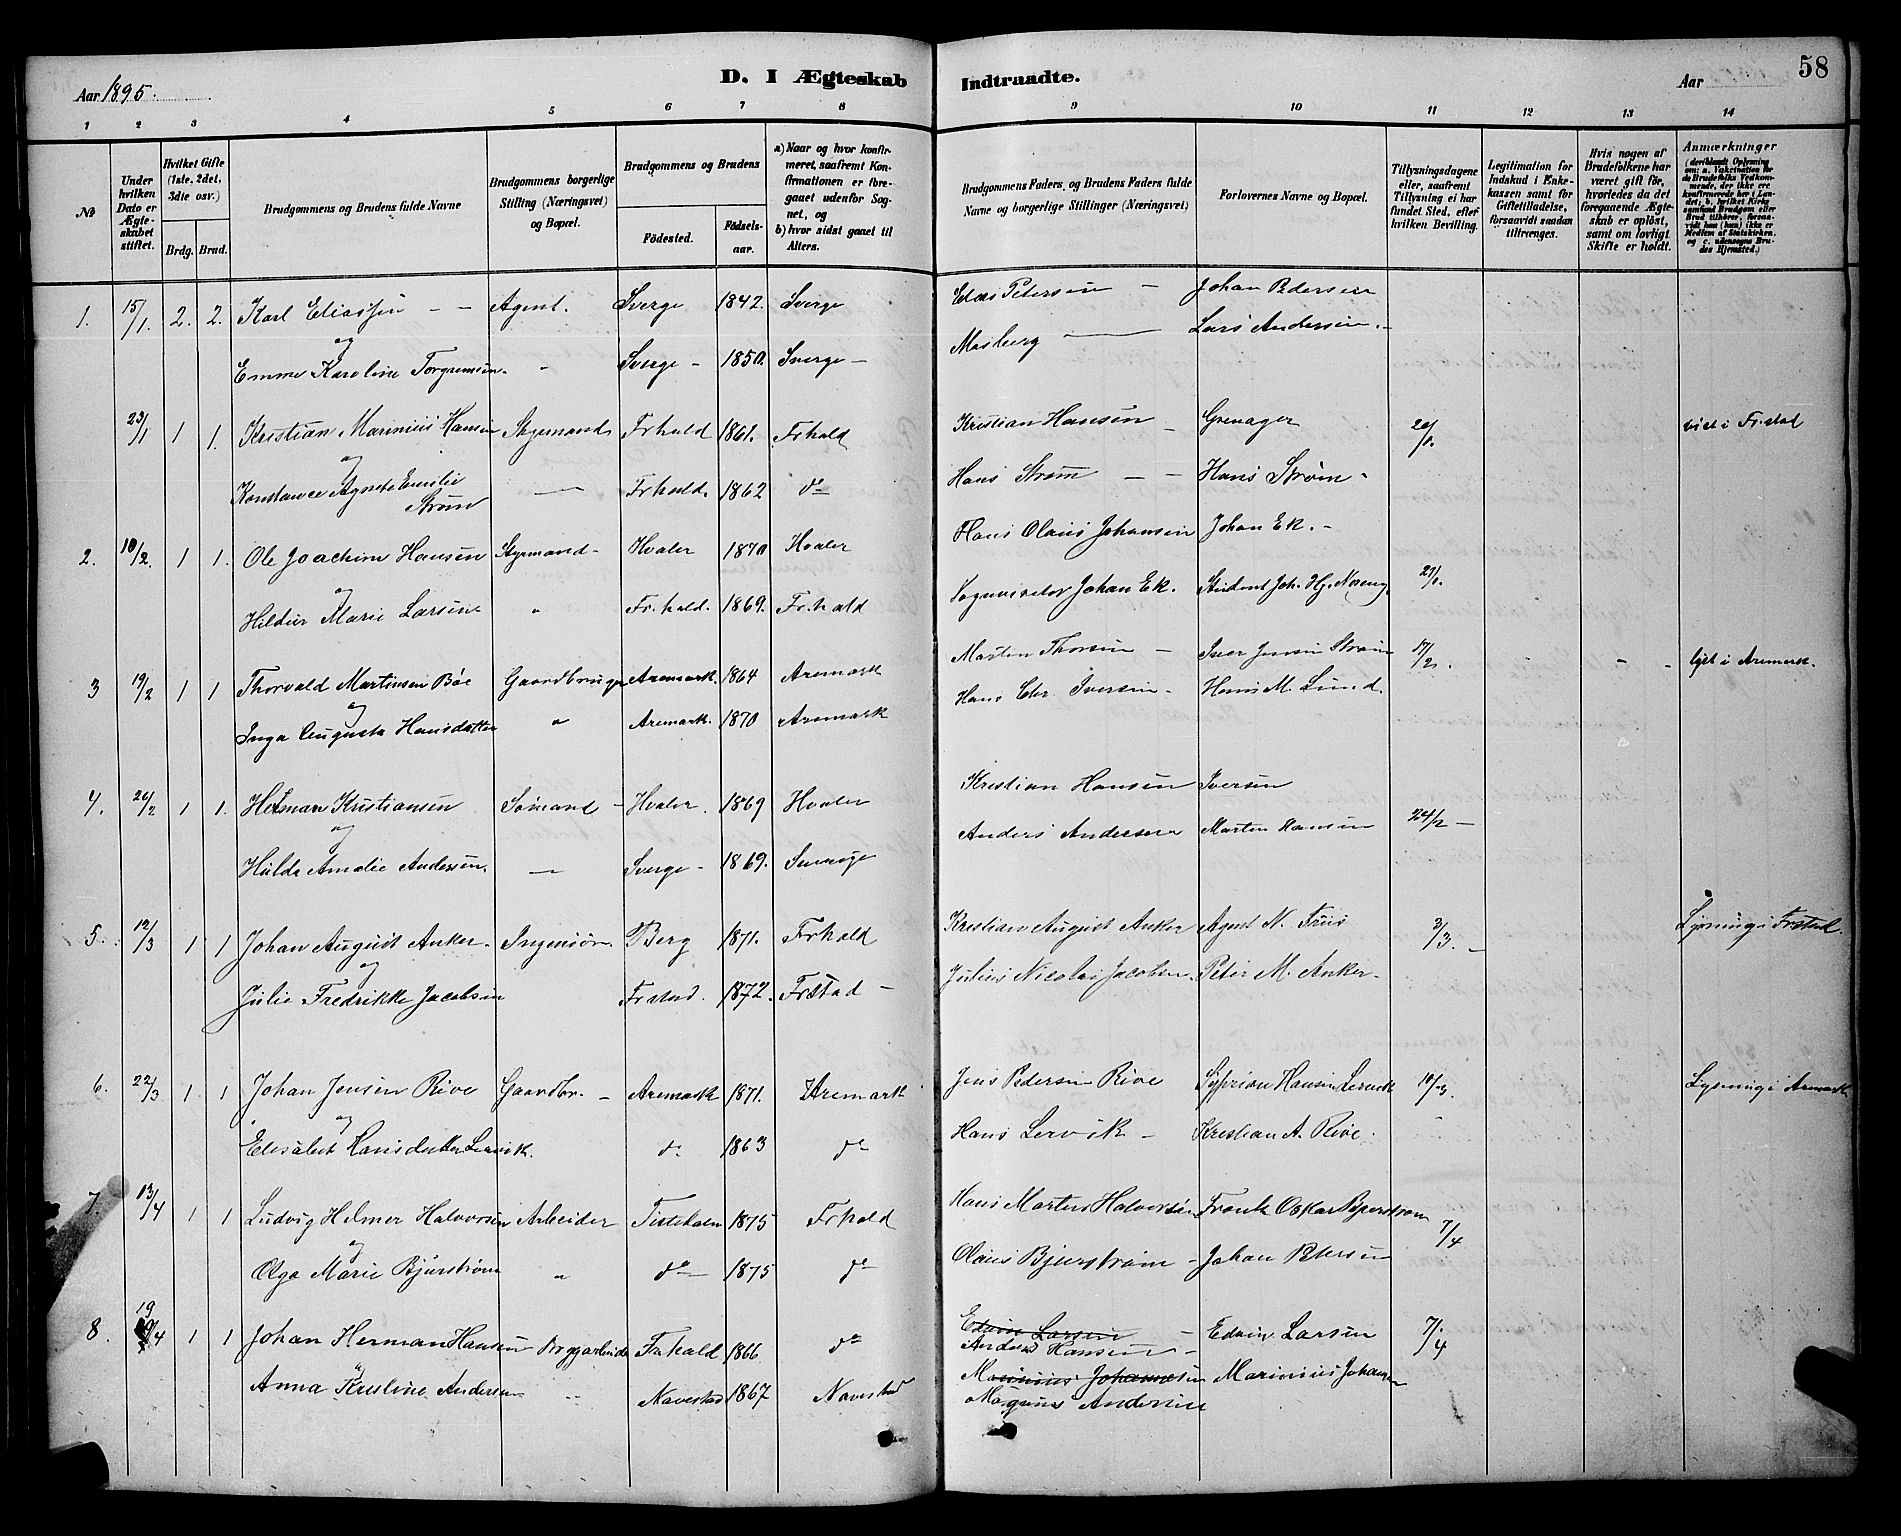 Aar 1895.
D. I Ægteskab
Indtraadte.
Aar
58
1 2 3 4 5 6 7 8 9 10 11 12 13 14
No
Under hvilken Dato er Ægteskabet stiftet.
Hvilket Gifte (1ste, 2det, 3die osv.)
Brdg. Brud.
Brudgommens og Brudens fulde Navne
Brudgommens borgerlige Stilling (Næringsvei) og Bopæl.
Brudgommens og Brudens
Födested.
Födsels-aar.
a) Naar og hvor konfirmeret, saafremt Konfirmationen er foregaaet udenfor Sognet, og
b) hvor sidst gaaet til Alters.
Brudgommens Faders, og Brudens Faders fulde Navne og borgerlige Stillinger (Næringsvei)
Forlovernes Navne og Bopæl.
Tillysningsdagene eller, saafremt Tillysning ei har fundet Sted, efter hvilken Bevilling.
Legitimation for Indskud i Enkekassen samt for Giftetilladelse, forsaavidt saadan tiltrænges.
Hvis nogen af Brudefolkene har været gift för, hvorledes da det foregaaende Ægteskab er oplöst, samt om lovligt Skifte er holdt.
Anmærkninger
1. 15/1. 2. 2. Karl Eliassen - - Agent. Sverge 1842. Sverge Elias Petersen - Johan Pedersen
og
Emma Karoline Torgersen. " Sverge - 1850. Sverge - Mosberg Lars Andersen.
23/1 1 1. Kristian Marinius Hansen Styrmand Frhald 1861. Frhald Kristian Hansen Grenager 20/1. viet i Fr.stad
og
Konstance Agnete Emilie Strøm Frhald. 1862 do Hans Strøm - - Hans Strøm.
2. 10/2. 1 1. Ole Joachim Hansen Styrmand - Hvaler 1870 Hvaler Hans Olaus Johansen Johan Ek. -
og
Hildur Marie Larsen " Fr.hald. 1869. Fr.hald Johan Ek. Student Joh. Hj. 27/1.
3 19/2 1 1 Thorvald Martinsen Bøe Gaardbruger Aremark. 1864 Aremark Morten Thorsen - Iver Jensen Strøm 17/2. lyst i Aremark.
og
Inga Augusta Hansdatter " Aremark. 1870 Aremark Hans Chr. Iversen - Hans M. Lund.
4. 26/2 1 1. Herman Kristiansen Sømand - Hvaler. 1869 Hvaler Kristian Hansen Iversen
og
Hulda Amalie Andersen. Sverge - 1869. Sverige Anders Andersen Morten Hansen 24/2 -
5. 12/3 1 1 Johan August Anker. Ingeniør. Berg 1871. Frhald Kristian August Anker Agent N. Friis 3/3. - Lysning i Frstad.
og
Julie Fredrikke Jacobsen Frstad. 1872. Frstad - Julius Nicolai Jacobsen. Peter M. Anker.
6. 22/3 1. 1 Johan Jensen Rive Gaardbr. - Aremark 1871. Aremark Jens Pedersen Rive Syprian Hansen Lervik 10/3. Lysning i Aremark
og
Elisabet Hansdatter Lervik. do 1863 do Hans Lervik - Kristian A. Rive.
7. 13/4 1 1 Ludvig Helmer Halvorsen Arbeider Tistedalen 1875 Frhald Hans Martin Halvorsen Frantz Oskar Bjerstrøm 7/4
og
Olga Marie Bjurstrøm " do 1875 do Olaus Bjurstrøm - Johan Petersen
8. 19/4 1 1 Johan Herman Hansen Bryggearbeider Frhald 1866 do Edvin Larsen - Edvin Larsen 7/4
Anders Hansen -
Anna Kristine Andersen " Navestad 1867 Navestad Marinius Johansen Marinius Johansen
Magnus Andersen